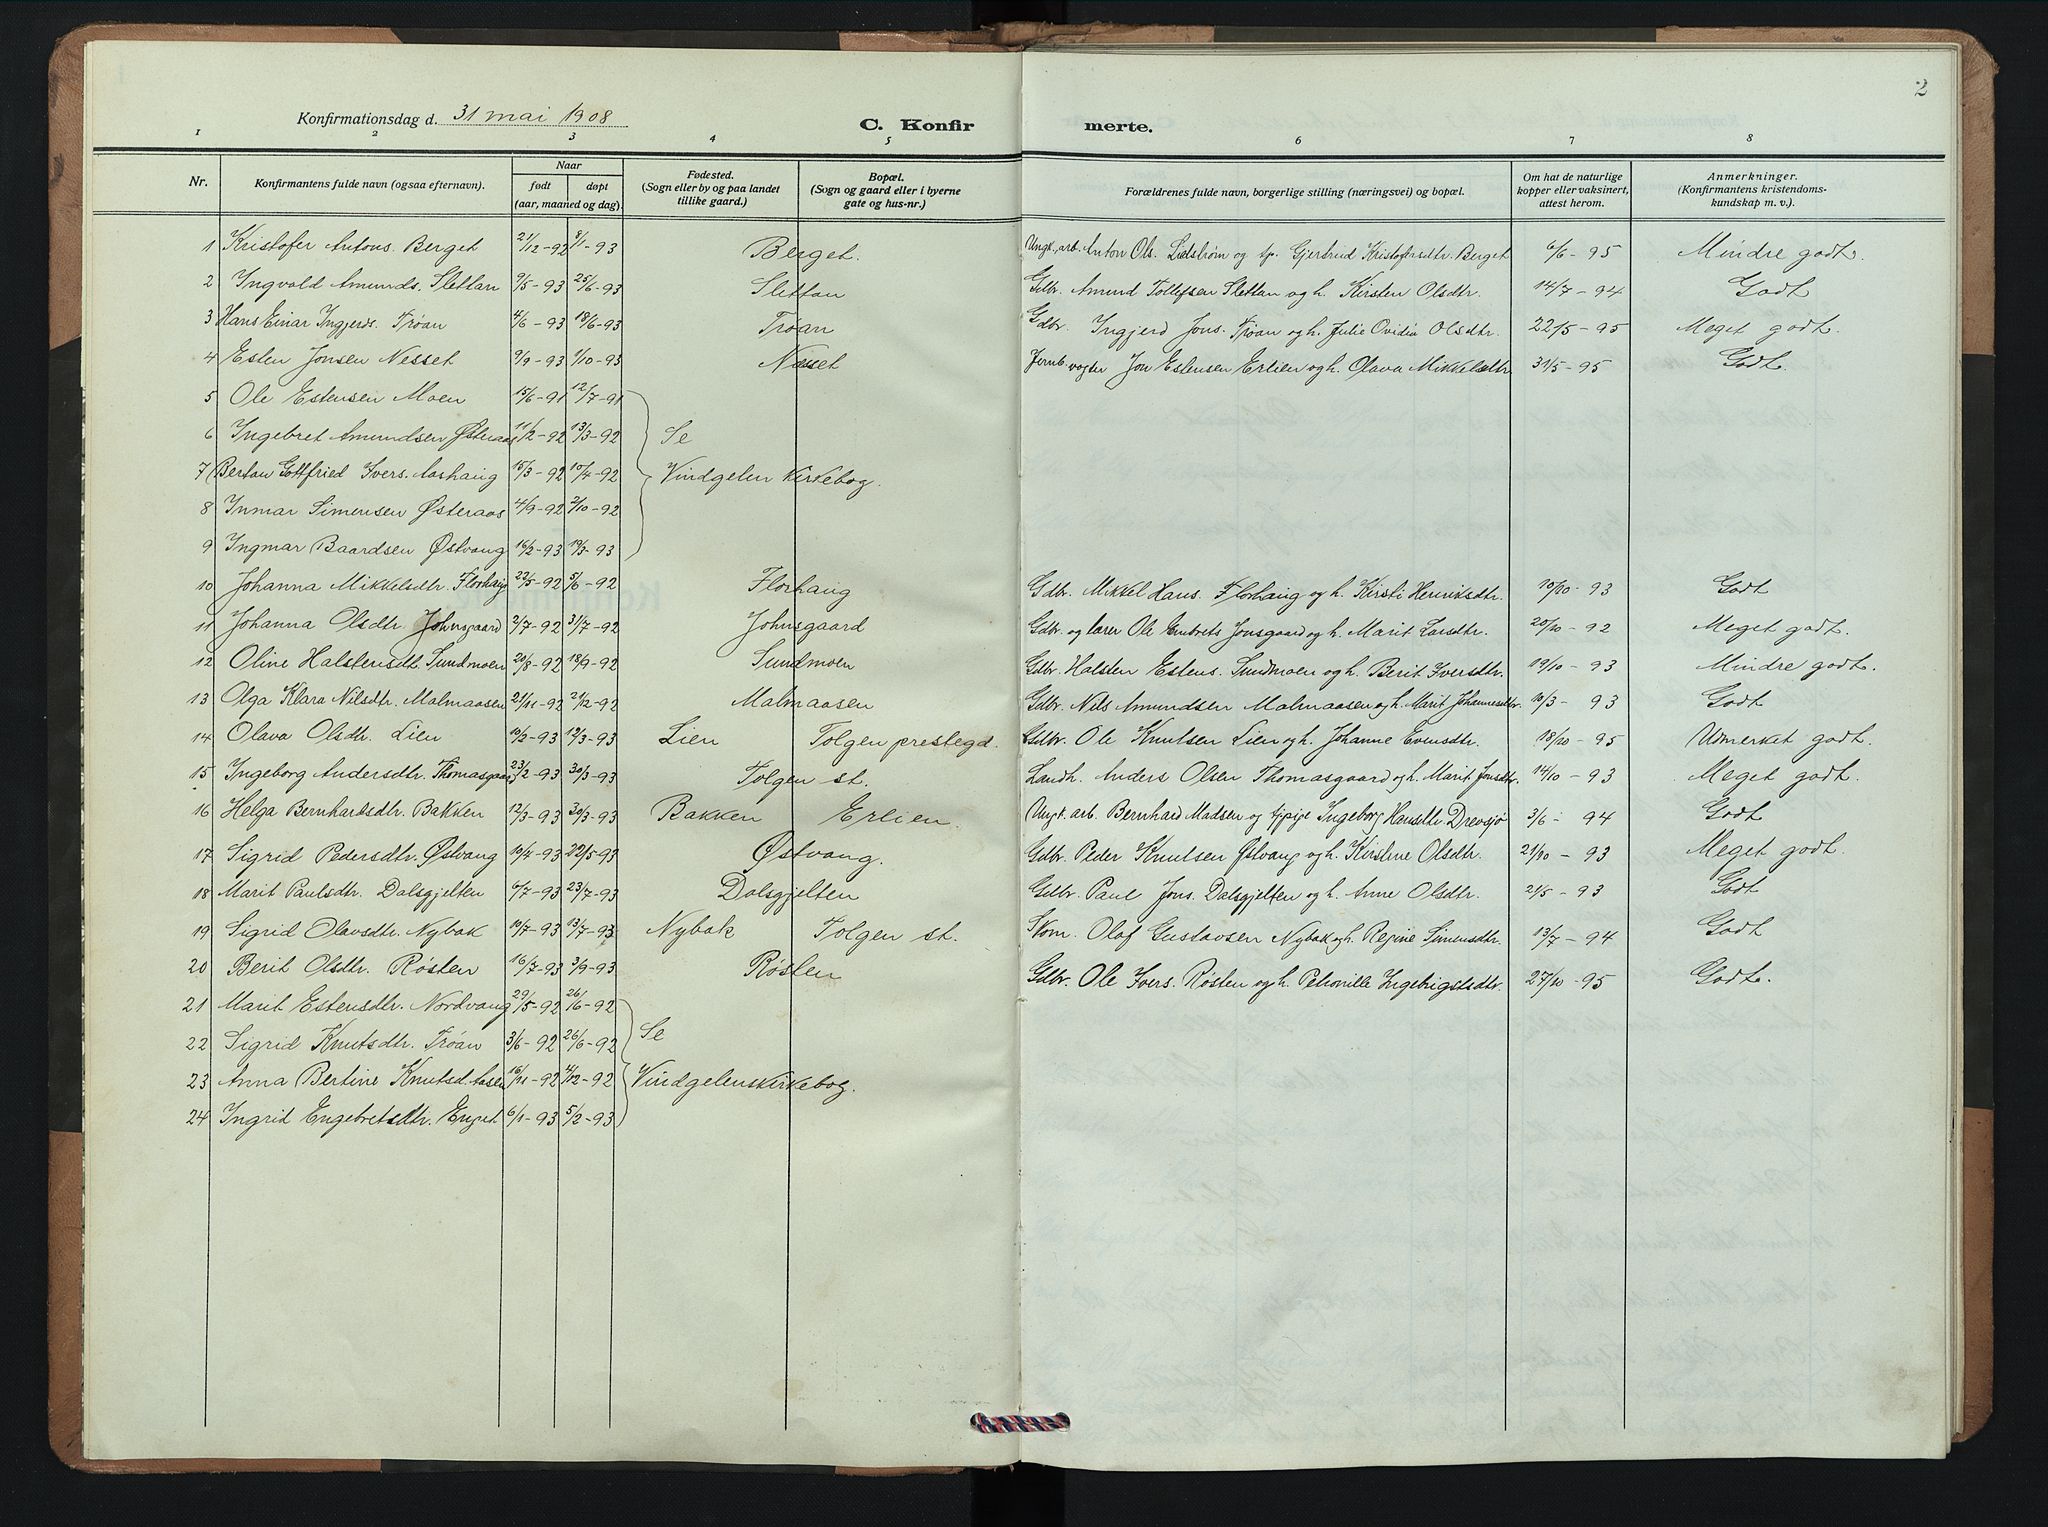 2
Konfirmationsdag d. 31 mai 1908
C. Konfirmerte.
1 2 3 4 5 6 7 8
Nr. | Konfirmantens fulde navn (ogsaa efternavn). | Naar født døpt (aar, maaned og dag). | Fødested. (Sogn eller by og paa landet tillike gaard.) | Bopæl. (Sogn og gaard eller i byerne gate og hus-nr.) | Forældrenes fulde navn, borgerlige stilling (næringsvei) og bopæl. | Om hat de naturlige kopper eller vaksinert, attest herom. | Anmerkninger. (Konfirmantens kristendomskundskap m. v.).
1 Kristofer Antons. Berget 21/12-92 8/1-93 Berget. Ungk. arb. Anton Ols. Lidstrøm og tp. Gjertrud Kristofersdtr. Berget 6/6-95 Mindre godt.
2 Ingvald Amunds. Slettan 9/5-93 25/6-93 Slettan Gdbr. Amund Tollefsen Slettan og h. Kirsten Olsdtr. 14/7-94 Godt
3 Hans Einar Ingjerds. Trøan 4/6-93 18/6-93 Trøan Gdbr. Ingjerd Jons. Trøan og h. Julie Ovidia Olsdtr. 22/5-95 Meget godt.
4 Esten Jonsen Nesset 9/9-93 1/10-93 Næsset Jernb.vogter Jon Estensen Erlien og h. Olava Mikkelsdtr 31/5-95 Godt.
5 Ole Estensen Moen 15/6-91 12/7-91
6 Ingebret Amundsen Østeraas 11/2-92 13/3-92 Se
7 Bertau Gottfried Ivers. Aashaug 15/3-92 10/4-92 Vindgelen Kirkebog.
8 Inmar Simensen Østeraas 4/9-92 2/10-92
9 Ingmar Baardsen Østvang 16/2-93 19/3-93
10 Johanna Mikkelsdtr. Florhaug 22/5-92 5/6-92 Florhaug Gdbr. Mikkel Hans. Florhaug og h. Kirsti Henriksdtr. 19/10-93 Godt
11 Johanna Olsdtr. Johnsgaard 2/7-92 31/7-92 Johnsgaard Gdbr. og lærer Ole Embrets Jonsgaard og h. Marit Larsdtr. 20/10-92 Meget godt.
12 Oline Halstensdtr. Sundmoen 20/8-92 18/9-92 Sundmoen Gdbr. Halsten Estens. Sundmoen og h. Berit Iversdtr. 19/10-93 Mindre godt.
13 Olga Klara Nilsdtr. Malmaasen 21/11-92 21/12-92 Malmaasen Gdbr. Nils Amundsen Malmaasen og h. Marit Johannesdtr. 10/3-93 Godt
14 Olava Olsdtr. Lien 10/2-93 12/3-93 Lien Tolgen prestegd. Gdbr. Ole Knutsen Lien og h. Johanne Evensdtr. 18/10-95 Udmerket godt.
15 Ingeborg Andersdtr. Thomasgaard 23/2-93 30/3-93 Tolgen st. Landh. Anders Olsen Thomasgaard og h. Marit Jonsdtr. 14/10-93 Meget godt.
16 Helga Bernhardsdtr. Bakken 12/3-93 30/3-93 Bakken Erlien. Ungk. arb. Bernhard Madsen og tj.pige Ingeborg Hansdtr. Drevsjø 3/6-94 Godt
17 Sigrid Pedersdtr. Østvang 10/4-93 22/5-93 Østvang. Gdbr. Peder Knutsen Østvang og h. Kirstine Olsdtr. 21/10-93 Meget godt.
18 Marit Paulsdtr. Dalsgjelten 6/7-93 23/7-93 Dalsgjelten Gdbr. Paul Jons. Dalsgjelten og h. Anne Olsdtr. 21/5-93 Godt
19 Sigrid Olavsdtr. Nybak 10/7-93 13/7-93 Nybak Tolgen st. Skom. Olaf Gustavsen Nybak og h. Regine Simensdtr. 13/7-94 Godt
20 Berit Olsdtr. Røsten 16/7-93 3/9-93 Røsten Gdbr. Ole Ivers. Røsten og h. Petronille Ingebrigtsdtr. 27/10-95 Godt.
21 Marit Estensdtr. Nordvang 29/5-92 26/6-92
22 Sigrid Knutsdtr. Trøan 3/6-92 26/6-92 Se
23 Anna Bertine Knutsd. Aasen 16/11-92 4/12-92 Vindgelens kirkebog.
24 Ingrid Engebretsdtr. Enget 6/1-93 5/2-93